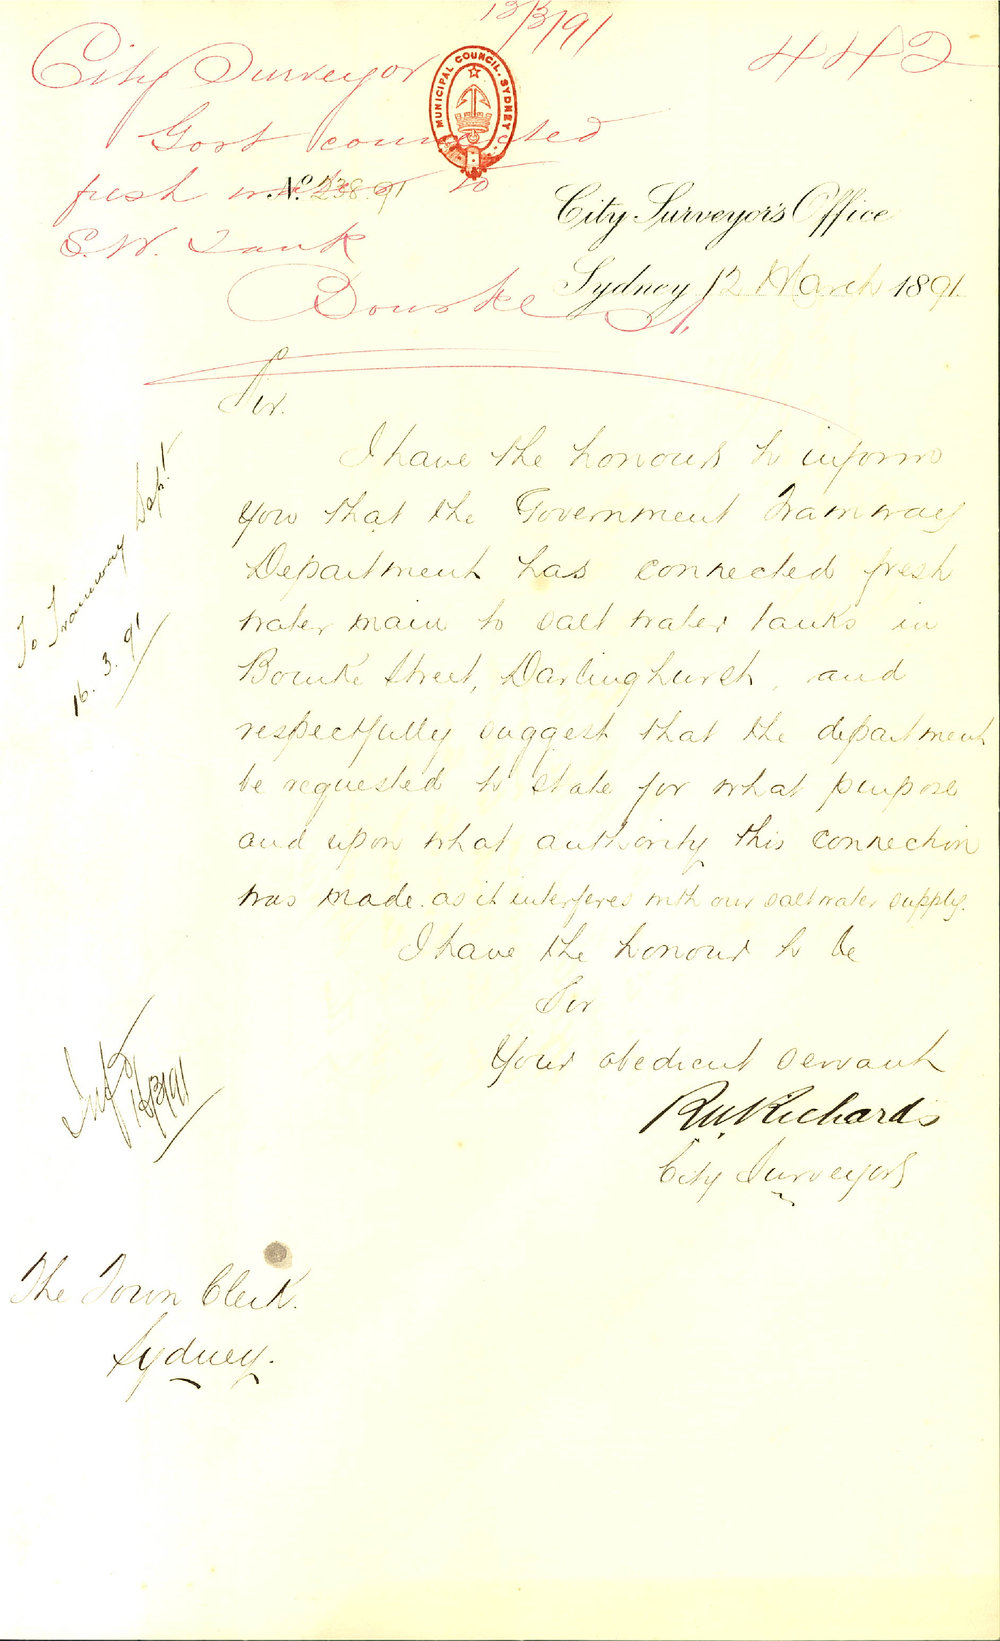 13/3/91
442
City Surveyor
Govt connected
fresh water to
S.W. Tank
Bourke St.
MUNICIPAL COUNCIL. SYDNEY
No. 238.91
City Surveyor's Office
Sydney 12 March 1891.
Sir.
I have the honour to inform
you that the Government Tramway
Department has connected fresh
water main to salt water tanks in
Bourke Street, Darlinghurst, and
respectfully suggest that the department
be requested to state for what purpose
and upon what authority this connection
was made. as it interferes with our salt water supply.
I have the honour to be
Sir
Your obedient servant
R.W. Richards
City Surveyor
To Tramway Dept
16.3.91
13/3/91
The Town Clerk.
Sydney.